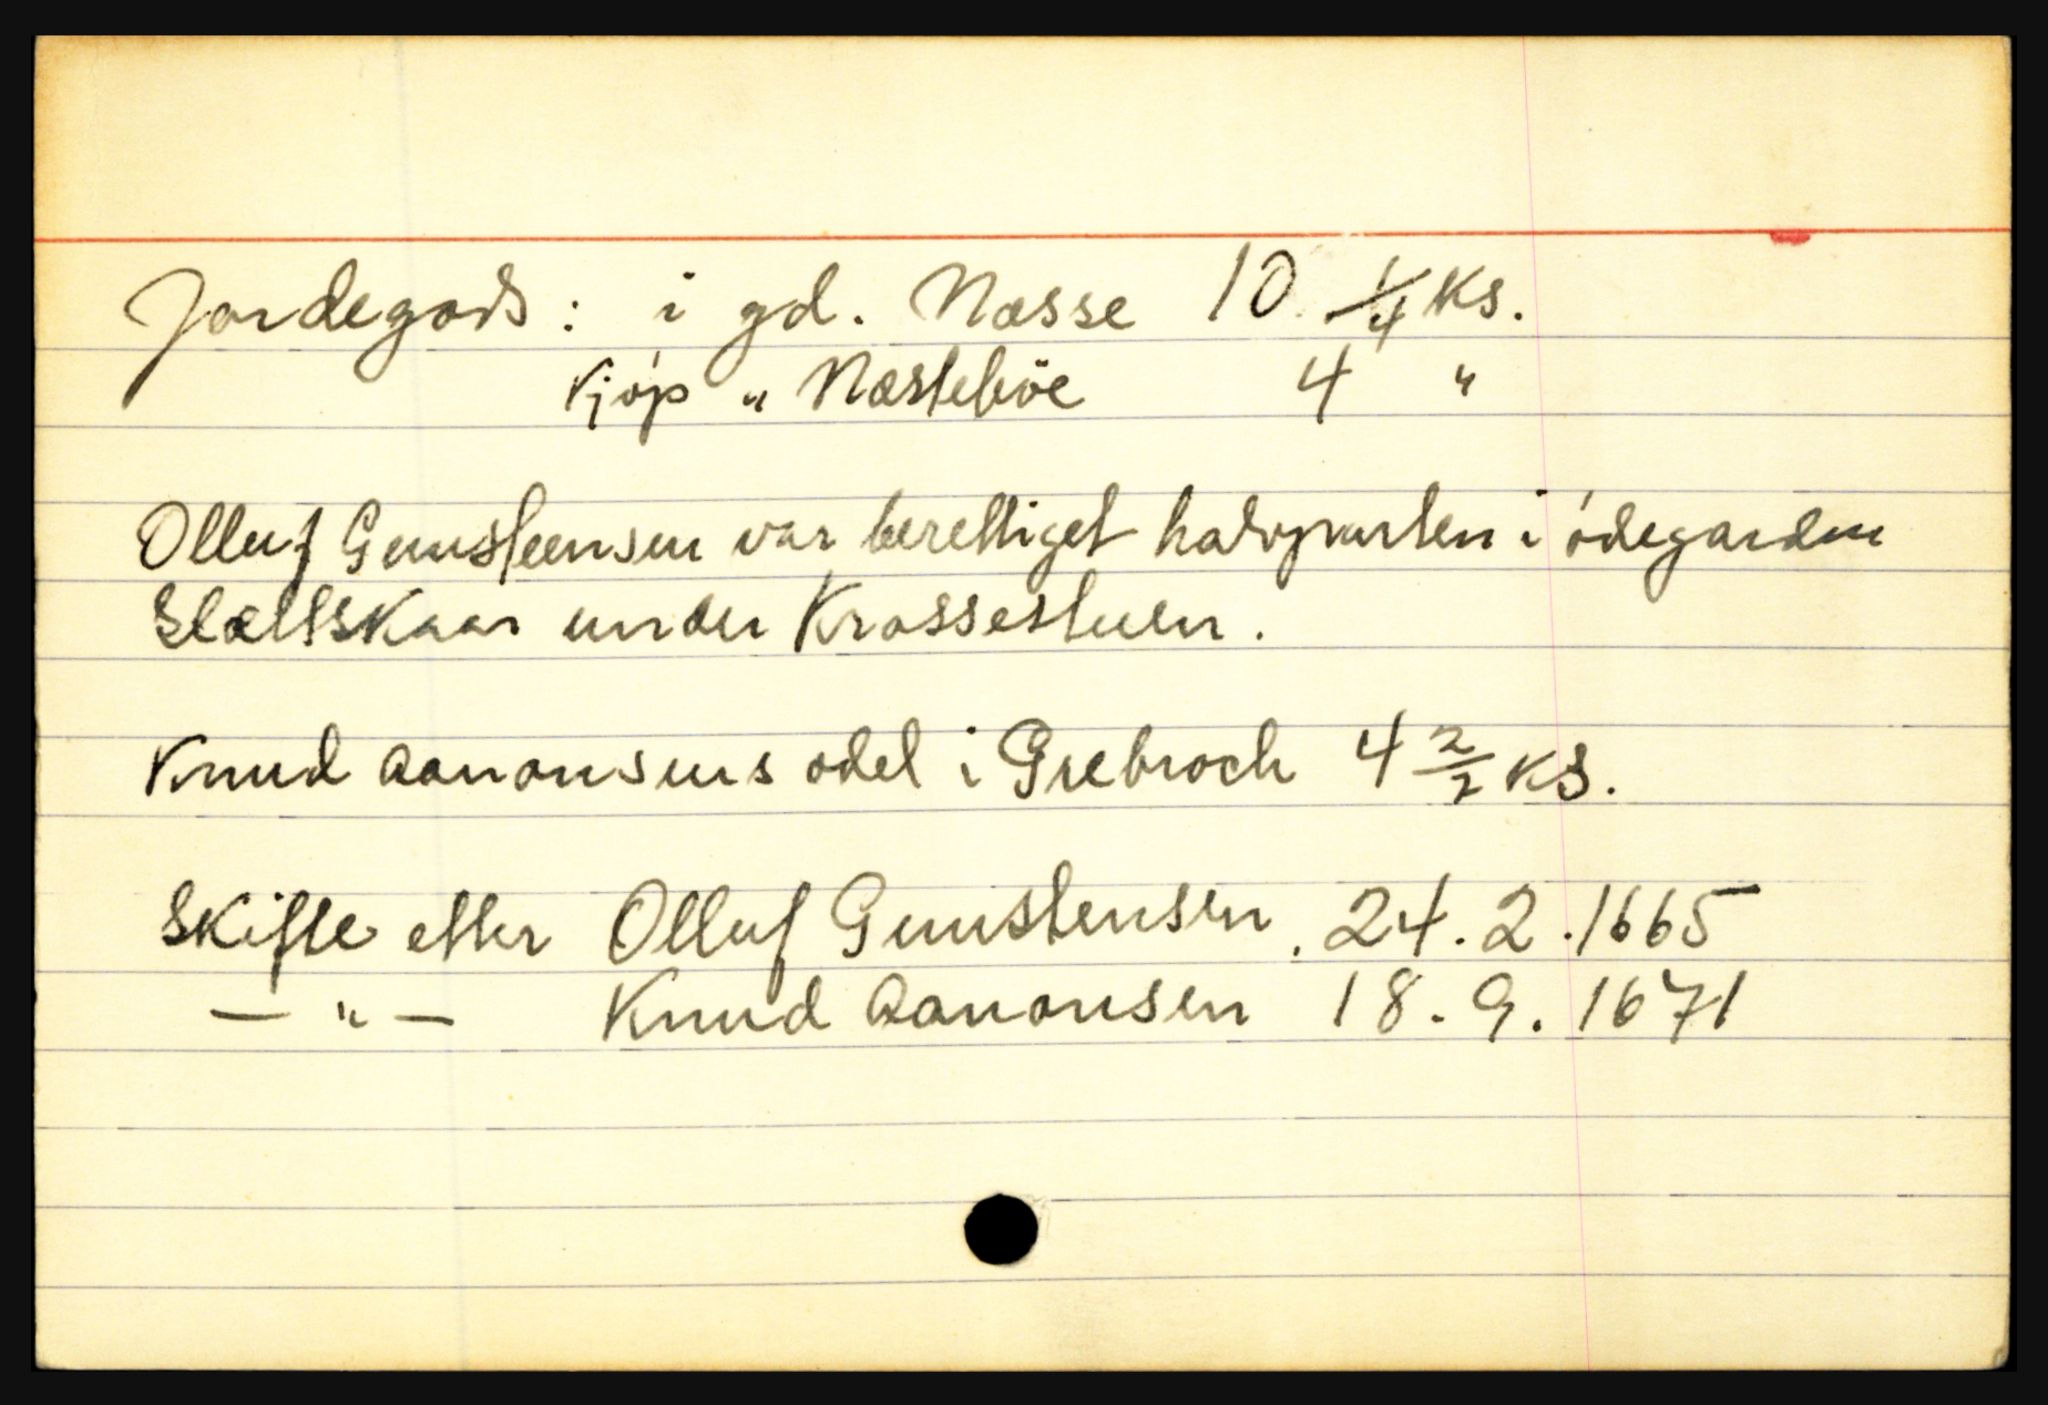 Jordegods: i gd. Næsse 10 1/4 Ks.
Kjóp " Næsteböe 4 "
Olluf Gunsteensen var berettiget halvparten i ódegarden
Slættskaar under Krossestuen.
Knud Aanonsens odel i Grebroch 4 2/2 Ks.
Skifte etter Olluf Gunstensen. 24.2.1665
— " — Knud Aanonsen 18.9.1671